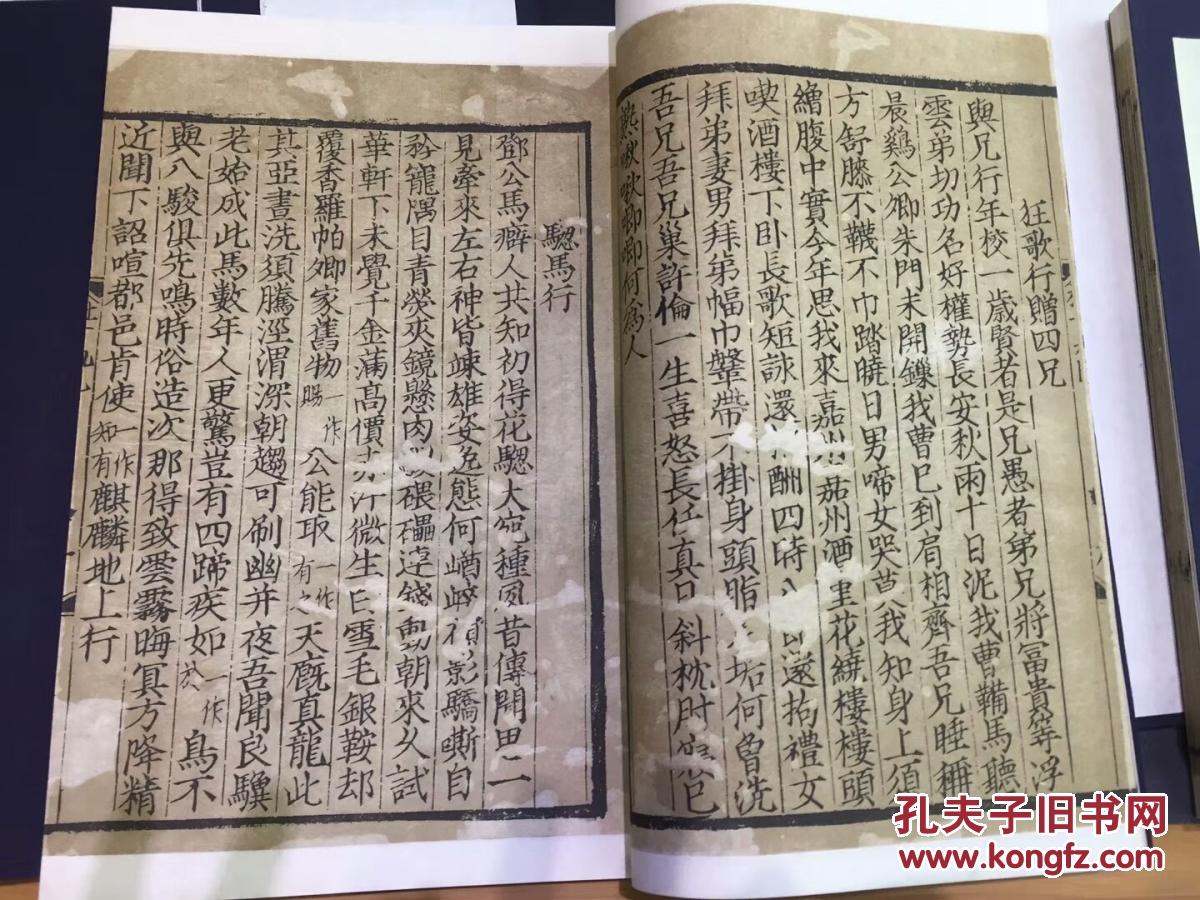 狂歌行贈四兄
與兄行年校一歲賢者是兄愚者弟兄將富貴等浮
雲弟切功名好權勢長安秋雨十日泥我曹鞴馬聽
晨鷄公卿朱門未開鏁我曹已到肩相齊吾兄睡穩
方舒膝不韈不巾踏曉日男啼女哭莫我知身上須
繒腹中實今年思我來嘉州嘉州酒重花繞樓樓頭
喫酒樓下卧長歌短詠還酬四時八節還拘禮女
拜弟妻男拜弟幅巾鞶帶不掛身頭脂足垢何曾洗
吾兄吾兄巢許倫一生喜怒長任真日斜枕肘寢已
熟啾啾唧唧何爲人
驄馬行
鄧公馬癖人共知初得花驄大宛種夙昔傳聞思一
見牽來左右神皆竦雄姿逸態何崷崒顧影驕嘶自
矜寵隅目青熒夾鏡懸肉駿碨礧連錢動朝來久試
華軒下未覺千金滿高價赤汗微生白雪毛銀鞍却
覆香羅帕卿家舊物一作賜公能取一作有之天廐真龍此
其亞晝洗須騰涇渭深朝趨可刷幽并夜吾聞良驥
老始成此馬數年人更驚豈有四蹄疾如一作於鳥不
與八駿俱先鳴時俗造次那得致雲霧晦冥方降精
近聞下詔喧都邑肯使一作知有麒麟地上行
孔夫子旧书网
www.kongfz.com